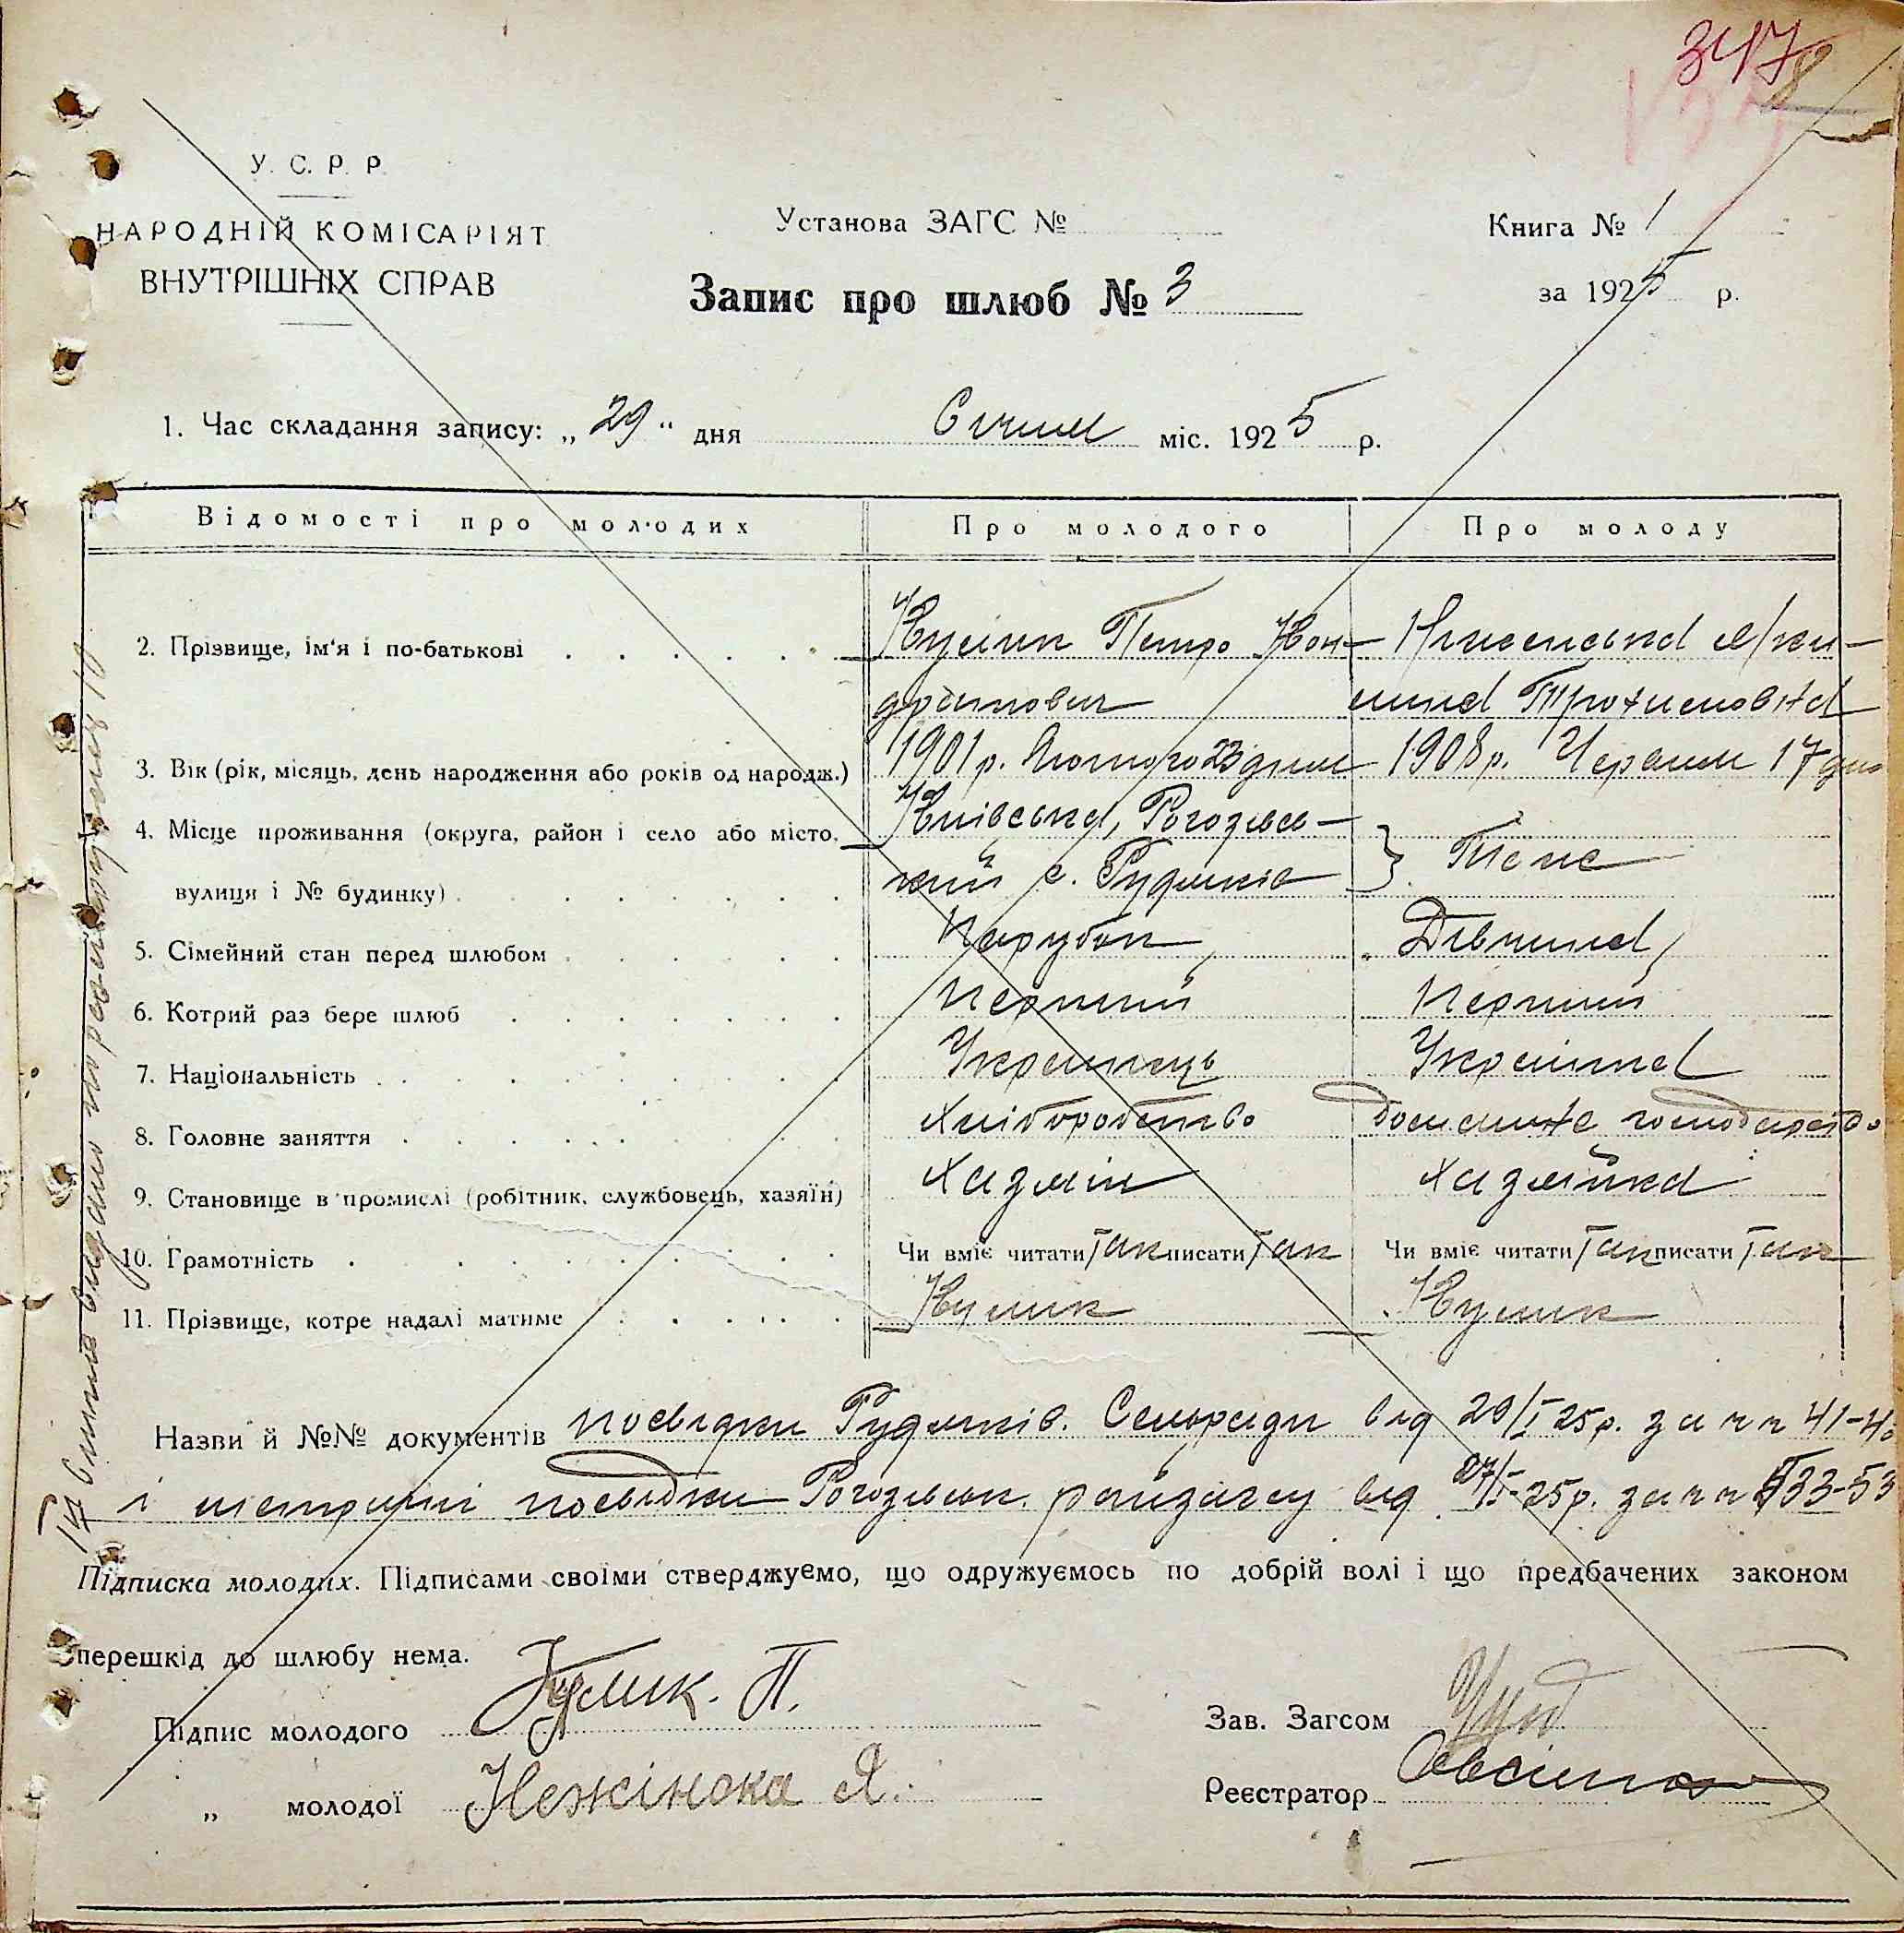 347
У. С. Р. Р.
НАРОДНІЙ КОМІСАРІЯТ
ВНУТРІШНІХ СПРАВ
Установа ЗАГС №
Книга № 1
Запис про шлюб № 3
за 1925 р.
1. Час складання запису: „29" дня Січня міс. 1925 р.
Відомості про молодих Про молодого Про молоду
2. Прізвище, ім'я і по-батькові Кулик Петро Кон-
дратович Трохимовна
3. Вік (рік, місяць, день народження або років од народж.) 1901 р. Лютого 23 дня 1908 р. Червня 17 дня
4. Місце проживання (округа, район і село або місто, Київська, Рогозівсь-
вулиця і № будинку) кий с. Рудяків } Теже
5. Сімейний стан перед шлюбом Парубок, Дівчина,
6. Котрий раз бере шлюб Перший Перший
7. Національність Українець Українка
8. Головне заняття Хліборобство домашнє господарство
9. Становище в промислі (робітник, службовець, хазяїн) Хазяїн Хазяйка
10. Грамотність Чи вміє читати Так писати Так Чи вміє читати Так писати Так
11. Прізвище, котре надалі матиме Кулик Кулик
Назви й №№ документів посвідки Рудяків. Сельради від 29/I 25 р. за нн 41-
і посвідки Рогозівськ. райзагсу від 27/I-25 р. за нн 33-53
Підписка молодих. Підписами своїми стверджуємо, що одружуємось по добрій волі і що предбачених законом
перешкід до шлюбу нема.
Підпис молодого Кулик. П.
Зав. Загсом
„ молодої Нежінска Я.
Реєстратор